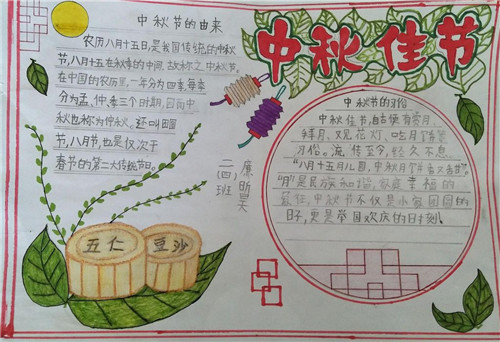 中秋佳节
中秋节的由来
农历八月十五日是我国传统的中秋
节,八月十五在秋季的中间,故称之中秋节。
在中国的农历里,一年分为四季,每季
分为孟、仲、季三个时期,因而中
秋也称为仲秋。还叫团圆
节,八月节,也是仅次于
春节的第二大传统节日。
二(四)班
中秋节的习俗
中秋佳节,自古便有赏月、
拜月、观花灯、吃月饼等
习俗。流传至今,经久不息。
"八月十五月儿圆,中秋月饼
"月"是民族和谐,家庭幸福的
象征,中秋节不仅是小家团圆的
日子,更是举国欢庆的时刻。
五仁
豆沙